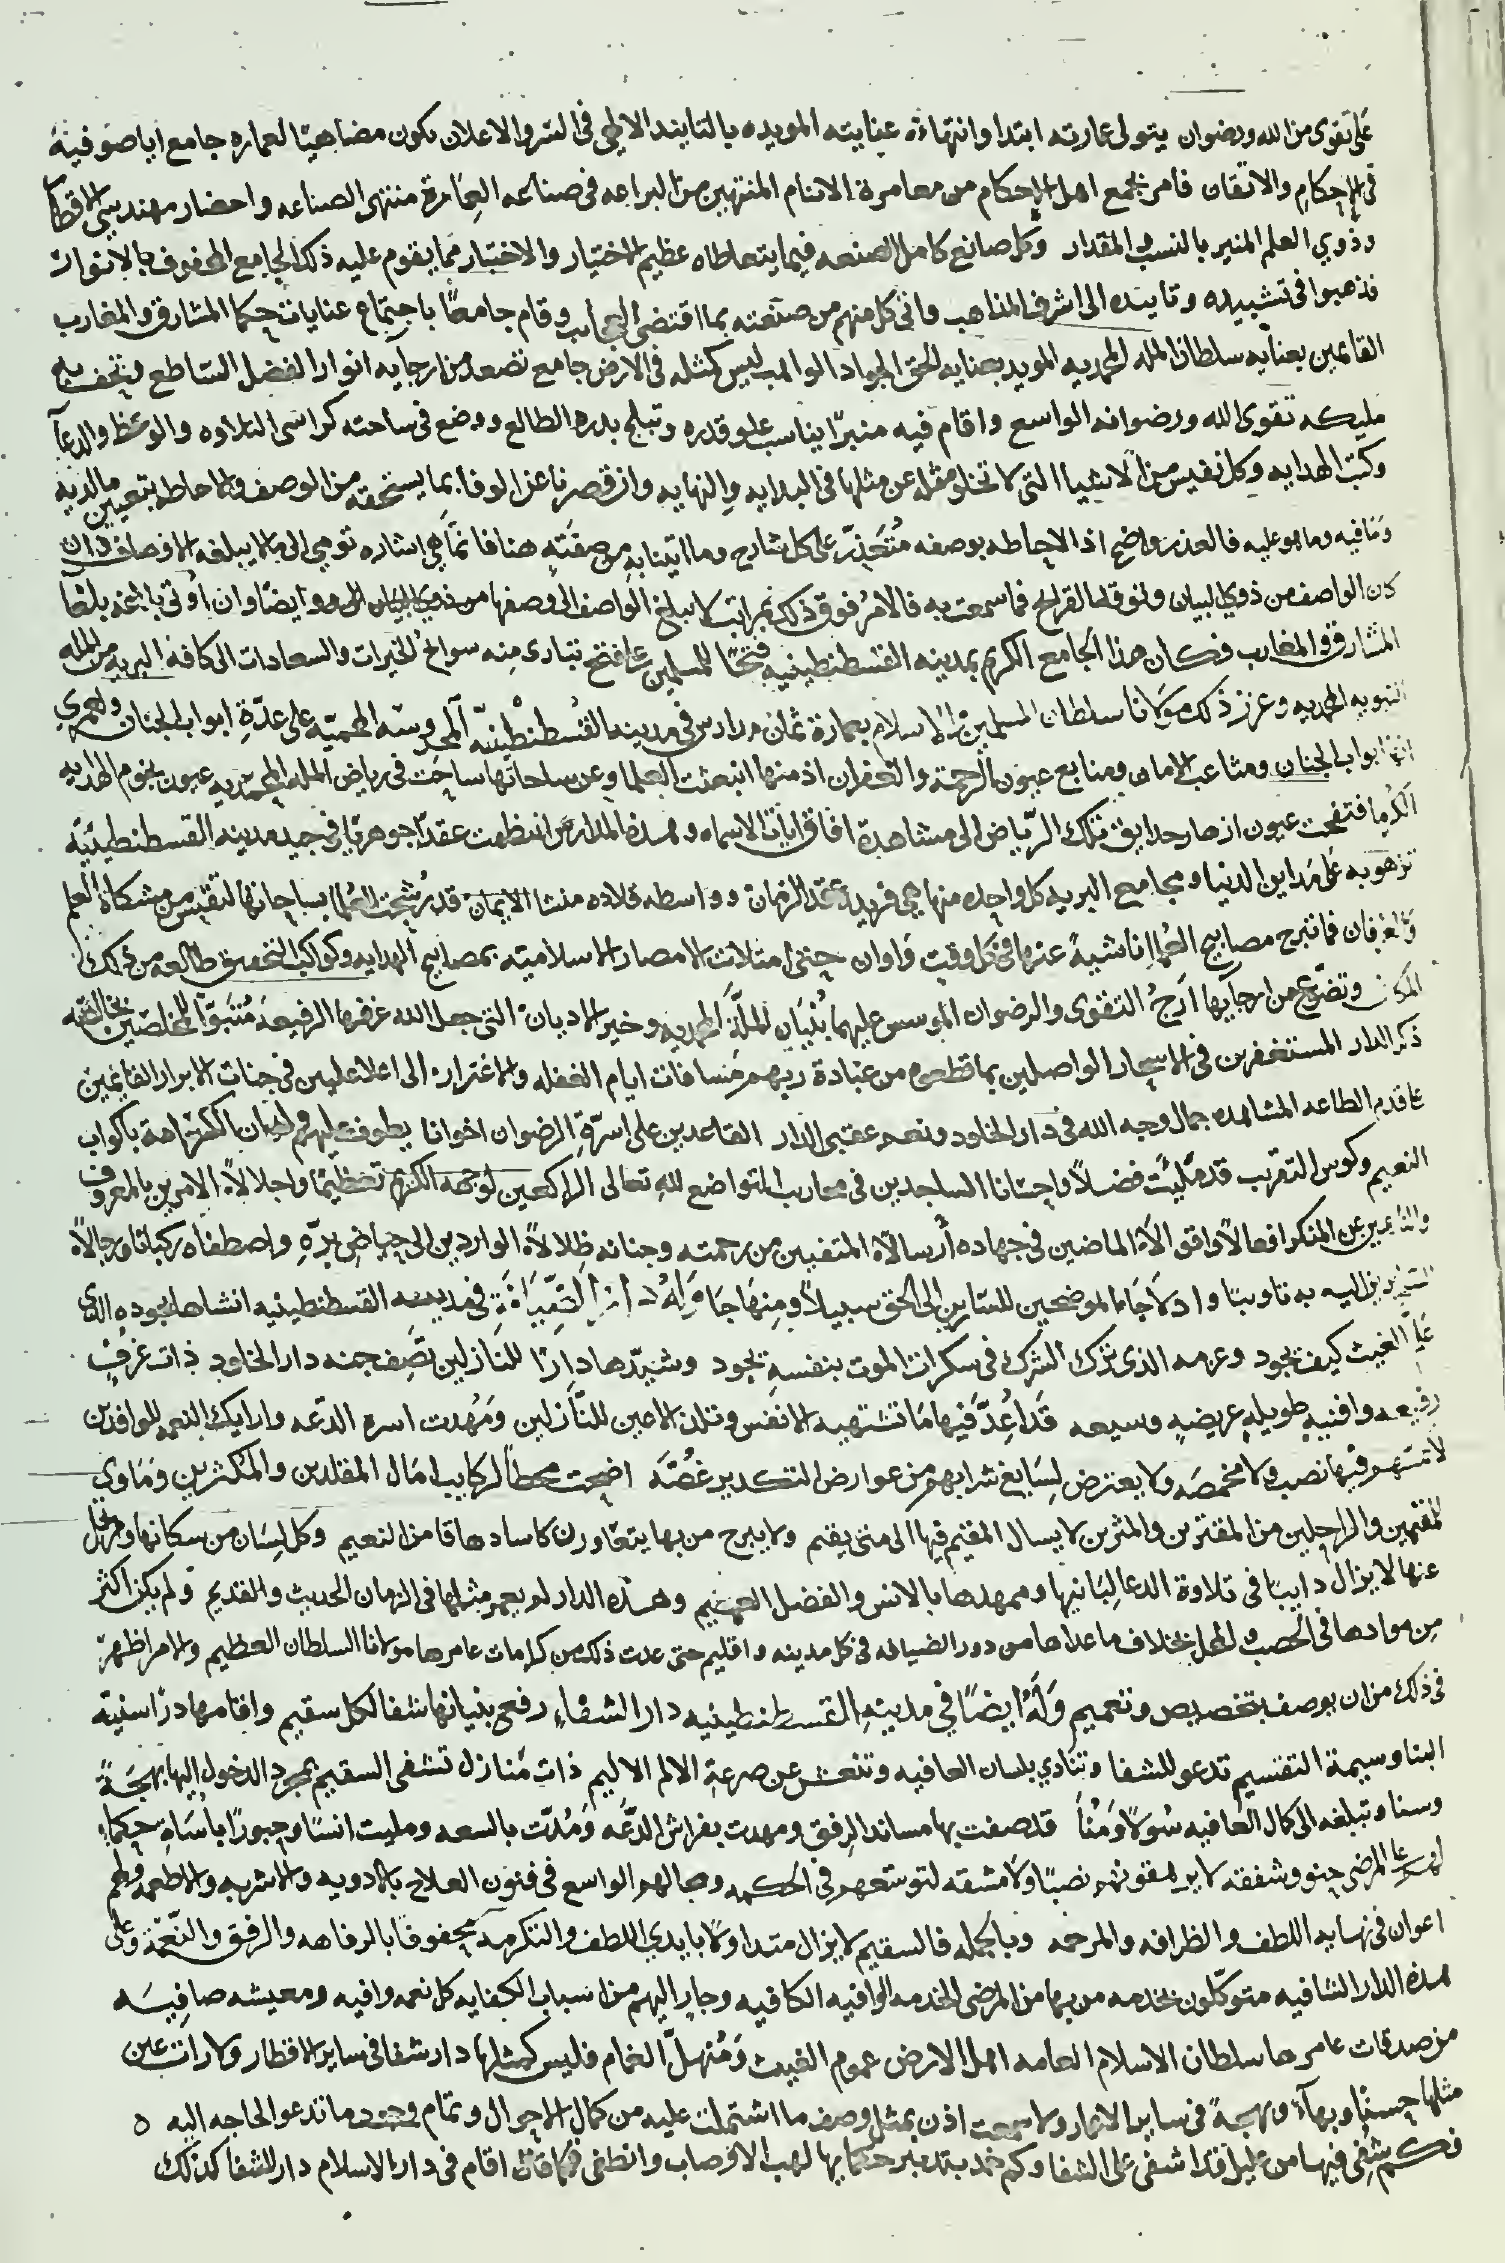 على تقوى من الله ورضوان يتولى عمارته ابتدا وانتهاءه عنايته المويده بالتاييد الالهي في السر والاعلان يكون مضاهيًا لعماره جامع اياصوفيه
في الاحكام والاتقان فامر بجمع اهل الاحكام من معامرة الانام المنتهين من البراعه في صناعه العِمَارة منتهى الصناعه واحضار مهندسي الاقطار
وذوي العلم المنير بالنسب والمقدار وكل صانع كامل الصنعه فيما يتعاطاه عظيم الاختيار والاختبار مما يقوم عليه ذلك الجامع المحفوف بالانوار
فذهبوا في تشييده وتاييده الى اشرف المذاهب واتى كل منهم من صنعته بما اقتضى العجايب وقام جامعًا باجتماع عنايات حكما المشارق والمغارب
القايمين بعنايه سلطان المله المحمديه المويد بعنايه الحق الجواد الواهب ليس كمثله في الارض جامع تصعد من ارجايه انوار الفضل الساطع
تقوى الله ورضوانه الواسع واقام فيه منبرًا يناسب علو قدره وتبلج بدره الطالع ووضع في ساحته كراسي التلاوه والوعظ والدعآ
وكتب الهدايه وكل نفيس من الاشيا التي لا تخلو مثله عن مثلها في البدايه والنهايه وان قصرنا عن الوفا بما يستحقه من الوصف والاحاطه بتعيين ما لديه
وما فيه وما هو عليه فالعذر واضح اذ الاحاطه بوصفه مُتعذّر على كل شارح وما اتينا به من صفته هنا فانما هي اشاره تومي الى ما لا يبلغه الاوصاف وان
كان الواصف من ذوي البيان وتوقد القرايح فما سمعت به فالامر فوق ذلك بمراتب لا يبلغ الواصف الى وصفها من ذوي البيان
المشارق والمغارب فكان هذا الجامع الكريم بمدينه القسطنطينيه فتحًا للمسلمين على فتح تبادى منه سوانح الخيرات والسعادات الى كافه البريه من المله
النبويه المحمديه وعزز ذلك مولانا سلطان المسلمين والاسلام بعمارة ثمان مدارس في مدينه القُسْطنْطِنيّه المحروسه المحميه على عدّةِ ابواب الجنان ولعمري
انها ابواب الجنان ومثاعب الامان ومنابع عيون الرحمة والغفران اذ منها انبعثت العلما وعن ساحاتها ساحت في رياض المله المحمديه عيون نجوم الهدايه
الكرما فتفتحت عيون ازهار حدايق تلك الرّياض الى مشاهدة افاق ايات الاسماء وبهذه المدارس انتظمت عقدًا جوهريًا في جيد مدينه القسطنطينيه
تزهو به على مداين الدنيا ومجامع البريه كل واحده منها هي فريدة عقد الزمان وواسطه قلاده منشا الايمان قد رُشحت العلما بساحاتها لتقتبس من مشكاة العلم
والعرفان فما تبرح مصابيح العُلما ناشيةً عنها في كل وقت واوان حتى امتلات الامصار الاسلاميه بمصابيح الهدايه وكواكب التحقيق طالعه من ذلك
المكان وتضوّع من ارجايها ارَجُ التقوى والرضوان الموسس عليهما بُنيان الملّة المحمديه وخير الاديان التي جعل الله غرفها الرفيعه مُتبوّأ للمخلصين بخالصه
ذكر الدار المستغفرين في الاسحار الواصلين بما قطعوه من عبادة ربهم مسافات ايام الغفله والاغترار الى اعلا عليين في جنات الابرار القايمين
على قدم الطاعه المشاهده جمال وجه الله في دار الخلود ونعم عقبى الدار القاعدين على اسرّةِ الرضوان اخوانا يطوف عليهم ولدان الكرامة باكواب
النعيم وكوس التقريب قد مُلِيت فضلاً واحسانا الساجدين في محاريب التواضع لله تعالى الراكعين لوجهه الكريم تعظيمًا واجلالاً الامرين بالمعروف
والناهين عن المنكر افعالاً واقوالاً الماضين في جهاده أرسالاً المتفيين من رحمته وجنانه ظِلالاً الواردين الى حياض برّه واصطفاه ركبانا ورجالاً
اليه به تاويبًا وادلاجًا الموضحين للسّارين الى الحق سبيلاً ومنهاجًا وَلَهُ دار الضيافة في مدينه القسطنطينيه انشاها بجوده الذي
علّم الغيث كيف يجود وعزمه الذي ترك الشرك في سكرات الموت بنفسه يجود وشيّدها دارًا للنازلين تصف جنه دار الخلود ذات غرفٍ
رفيعه وافنيةٍ طويله عريضهٍ وسيعه قد اُعِدّ فيها ما تشتهيه الانفس وتلذ الاعين للنّازلين ومُهدت اسره الدّعه وارايك النعم للوافدين
لا تمسّهم فيها نصب ولا مخمصه ولا يعترض لِسَايغ شرابهم من عوارض التكدير غُصّه اضحت محطاً لركايب امال المقلدين والمكثرين ومأوى
للمقيمين والراحلين من المقترين والمثرين لا يسال المقيم فيها الى متى يقيم ولا يبرح من بها يتعاورن كاسا دهاقا من النعيم وكل لسان من سكانها ومرتحل
عنها لا يزال دايبًا في تلاوة الدعا لِبَانيها وممهدها بالانس والفضل العميم وهذه الدار لم يعمر مثلها في الزمان الحديث والقديم ولم يكن اكثر
من موادها في الخصب والمحل بخلاف ما عداها من دور الضيافه في كل مدينه واقليم حتى عدت ذلك من كرامات عامرها مولانا السلطان العظيم والامر اظهر
في ذلك من ان يوصف بتخصيص وتعميم وَلَهُ ايضًا في مدينهِ القسطنطينيه دار الشفاء رفع بنيانها شفا لكل سقيم واقامها دارًا سنيّه
البنا وسيمة التقسيم تدعو للشفا وتنادي بلسان العافيه وتنعش عن صرعةِ الالم الاليم ذات مَنازل تشفي السقيم بمجرد الدخول اليها بهجَةً
وسنا وتبلغه الى كمال العافيه سُولاً ومُنًا قد صفت بها مساند الرفق ومهدت بفراش الدّعَه ومُدّت بالسعه ومليت انسًا وحبورًا باُسَاه حكماء
لهم على المرضى حنو وشفقه لا يرهقونهم نصبًا ولا مشقه لتوسعهم في الحكمه ومجالهم الواسع في فنون العلاج بالادويه والاشربه والاطعمه ولهم
اعوان في نهايه اللطف والظرافه والمرحمه وبالجمله فالسقيم لا يزال متداولاً بايدي اللطف والتكرمه محفوفًا بالرفاهه والرفق والنّعمة وعلى
هذه الدار الشافيه متوكّلون بخدمه من بها من المرضى الخدمه الوافيه الكافيه وجارٍ اليهم من اسباب الكفايه كل نعمه وافيه ومعيشه صافِيَه
من صدقات عامرها سلطان الاسلام العامه اهل الارض عموم الغيث ومُنهلّ الغمام فليس كمثلها دار شفا في ساير الاقطار ولا رات عين
مثلها حسنًا وبهآءً وبهجةً في ساير الامصار ولا سمعت اذن بمثل وصف ما اشتملت عليه من كمال الاحوال وتمام وجود ما تدعو الحاجه اليه ٥
فكم شُفِي فيها من عليل قد اشفى على الشفا وكم خمد بتدبير حكمايها لهب الاوصاب وانطفى فكما قال اقام في دار الاسلام دار الشفا كذلك